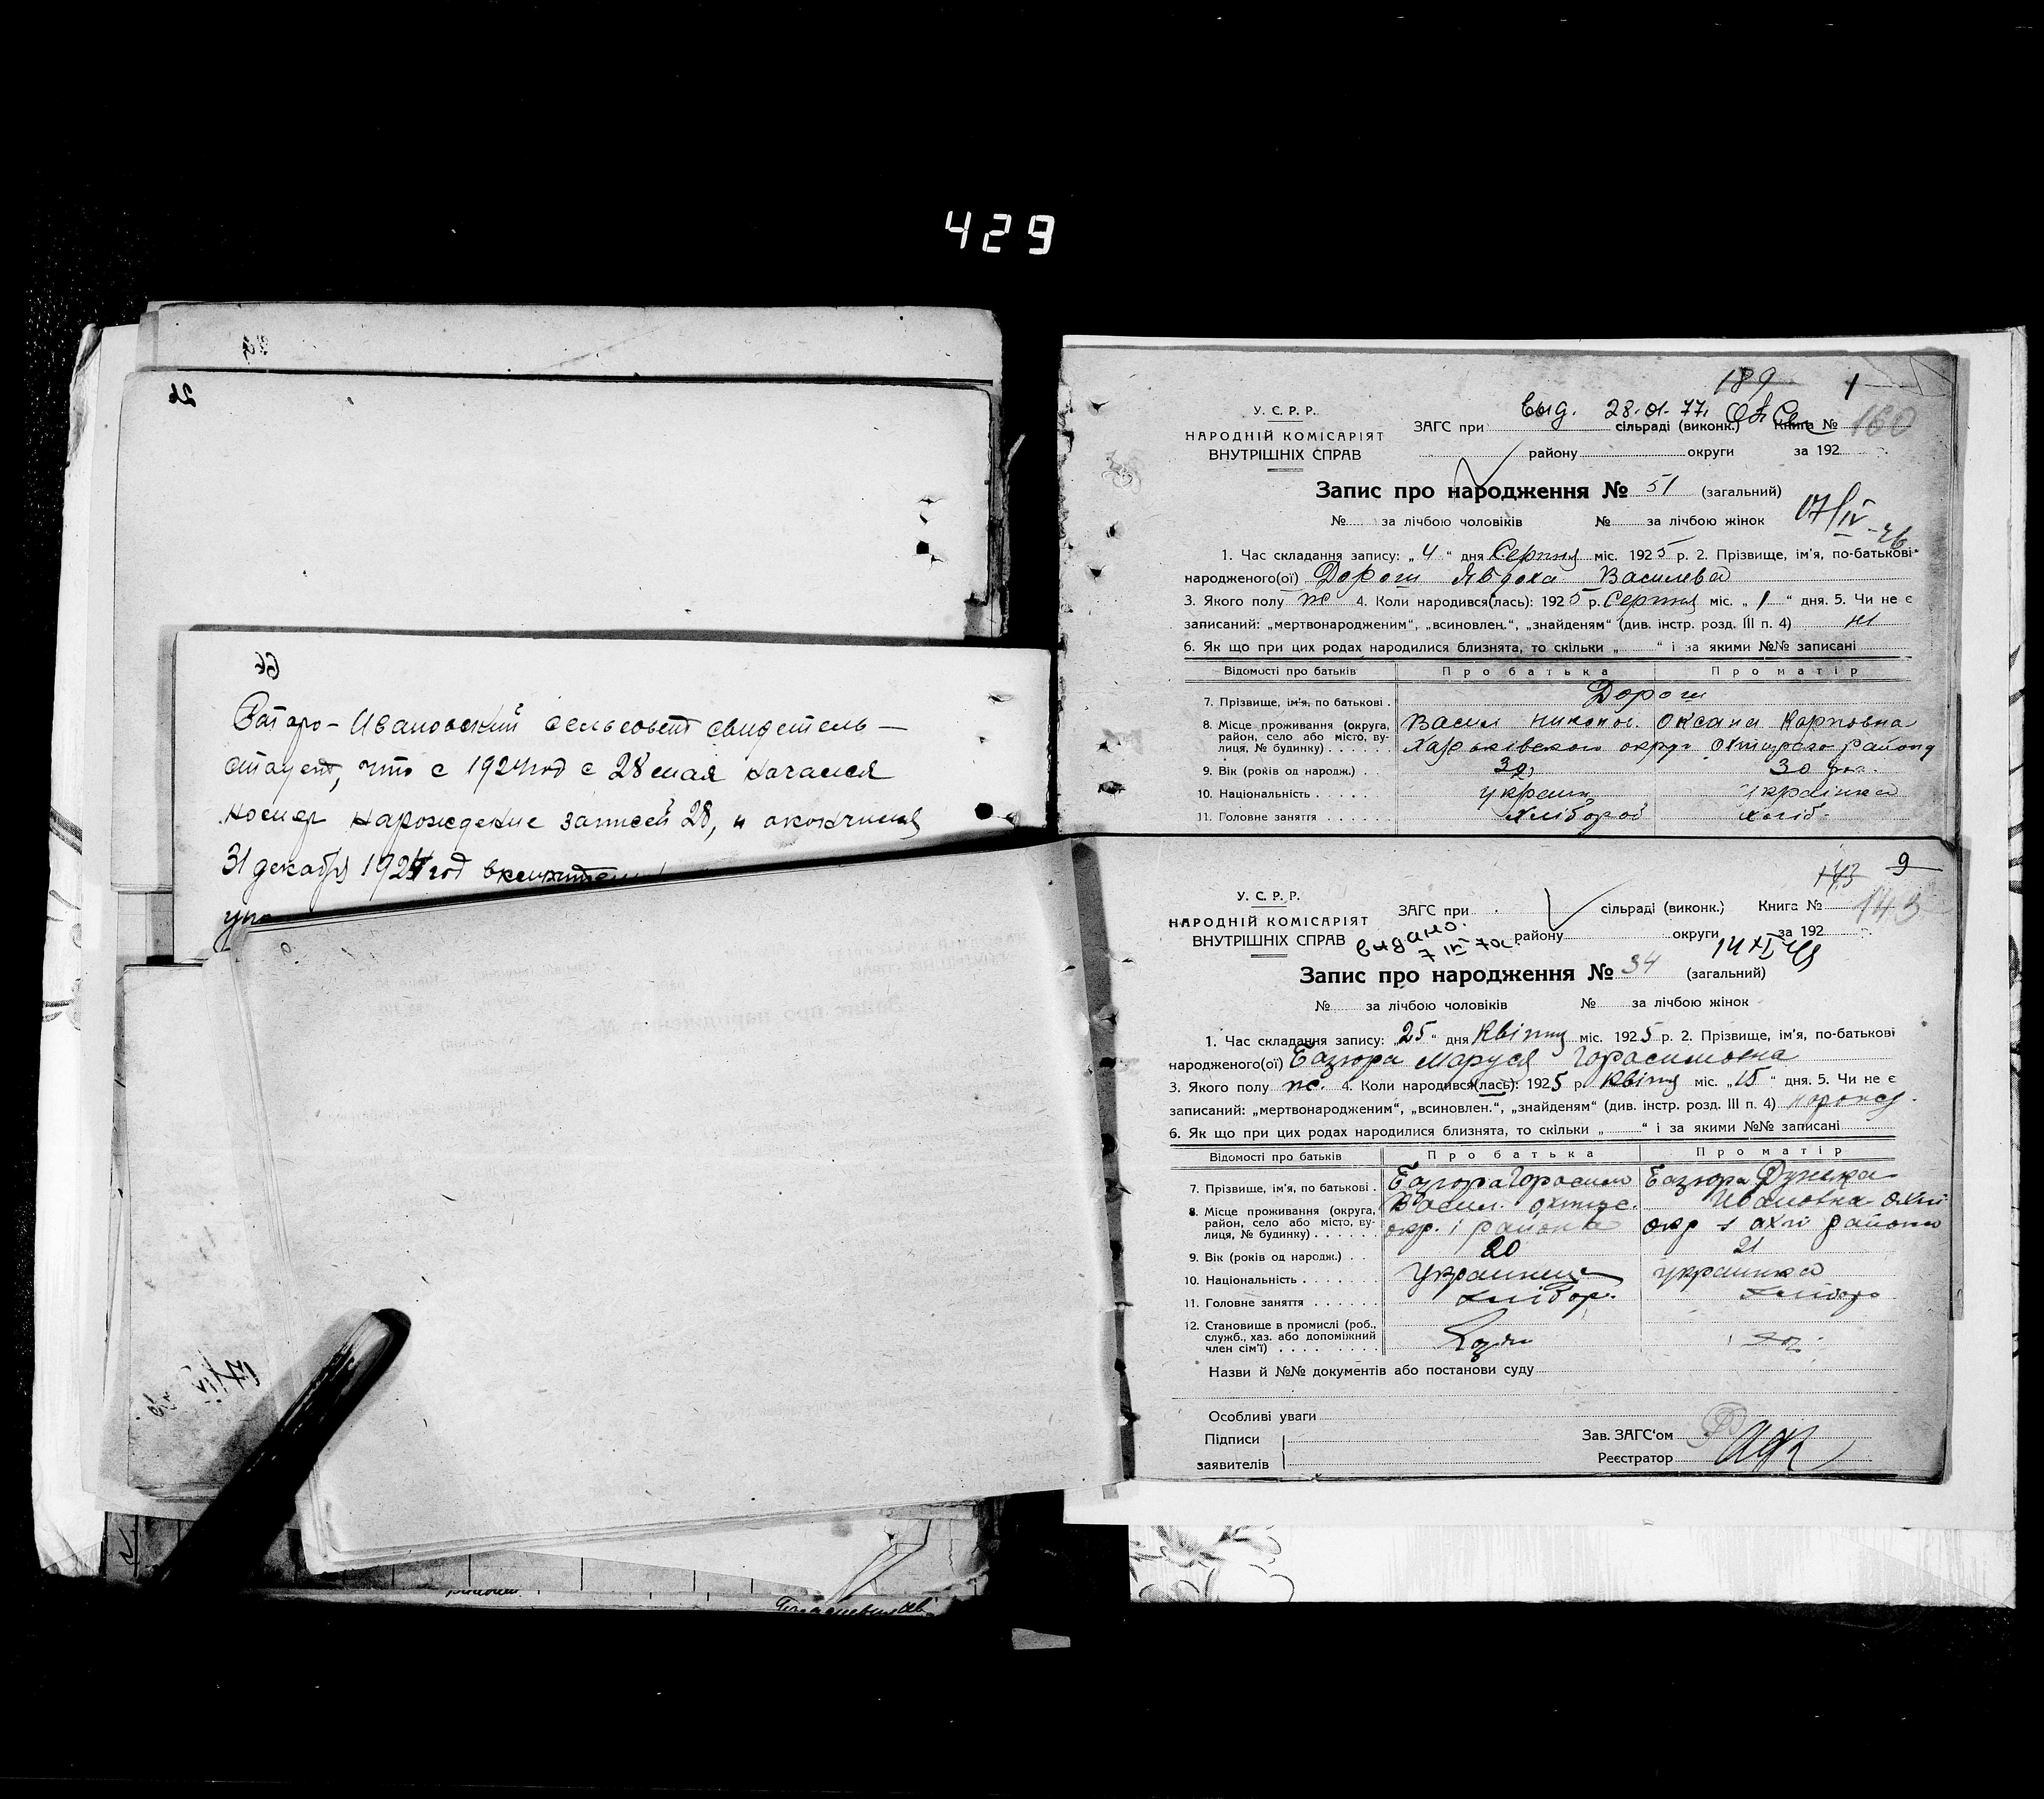 429
Ивановский сельсовет свидетель—
ствует, что с 1924 год с 28 мая начался
номер нарождение записей 28, и
31 декабря 1924 год
189 1
У. С. Р. Р.
НАРОДНІЙ КОМІСАРІЯТ
ВНУТРІШНІХ СПРАВ
выд. 28-01-77.
ЗАГС при сільраді (виконк.) Книга № 160
району округи за 192
Запис про народження № 51 (загальний)
№ за лічбою чоловіків № за лічбою жінок
17/IV-76
1. Час складання запису: „4“ дня Серпня міс. 1925 р. 2. Прізвище, ім'я, по-батькові
народженого(ої) Дорош Явдоха Василева
3. Якого полу ж 4. Коли народився(лась): 1925 р. Серпня міс. „1“ дня. 5. Чи не є
записаний: „мертвонародженим“, „всиновлен.“, „знайденям“ (див. інстр. розд. III п. 4) ні
6. Як що при цих родах народилися близнята, то скільки „ “ і за якими №№ записані
Відомості про батьків Про батька Про матір
7. Прізвище, ім'я, по батькові . Дорош
Васил Никонов. Оксана Карповна
8. Місце проживання (округа, район, село або місто, вулиця, № будинку) . . . . . Харьківскои округи Охтирсько району
9. Вік (років од народж.) . . 30 30
10. Національність . . . . . українка
11. Головне заняття . . . . . . Хлібороб хліб.
143 9
У. С. Р. Р.
НАРОДНІЙ КОМІСАРІЯТ
ВНУТРІШНІХ СПРАВ
ЗАГС при сільраді (виконк.) Книга № 143
видано. району округи за 192
7 III 70
Запис про народження № 34 (загальний)
№ за лічбою чоловіків № за лічбою жінок
1. Час складання запису: „25“ дня Квітня міс. 1925 р. 2. Прізвище, ім'я, по-батькові
народженого(ої) Базюра Маруся Горасимовна
3. Якого полу ж. 4. Коли народився(лась): 1925 р Квітня міс. „15“ дня. 5. Чи не є
записаний: „мертвонародженим“, „всиновлен.“, „знайденям“ (див. інстр. розд. III п. 4)
6. Як що при цих родах народилися близнята, то скільки „ “ і за якими №№ записані
Відомості про батьків Про батька Про матір
7. Прізвище, ім'я, по батькові . Базюра Горасим Базюра Дунька
Васил. охтирс. Ивановна Охти
8. Місце проживання (округа, район, село або місто, вулиця, № будинку) . . . . . окр. і района окр і охти района
9. Вік (років од народж.) . . 20 21
10. Національність . . . . . . Украинец украинка
11. Головне заняття . . . . . . хлібор. хлібор
12. Становище в промислі (роб., служб., хаз. або допоміжний член сім'ї) . . . . .
Назви й №№ документів або постанови суду
Особливі уваги
Підписи
заявителів
Зав. ЗАГС'ом
Реєстратор